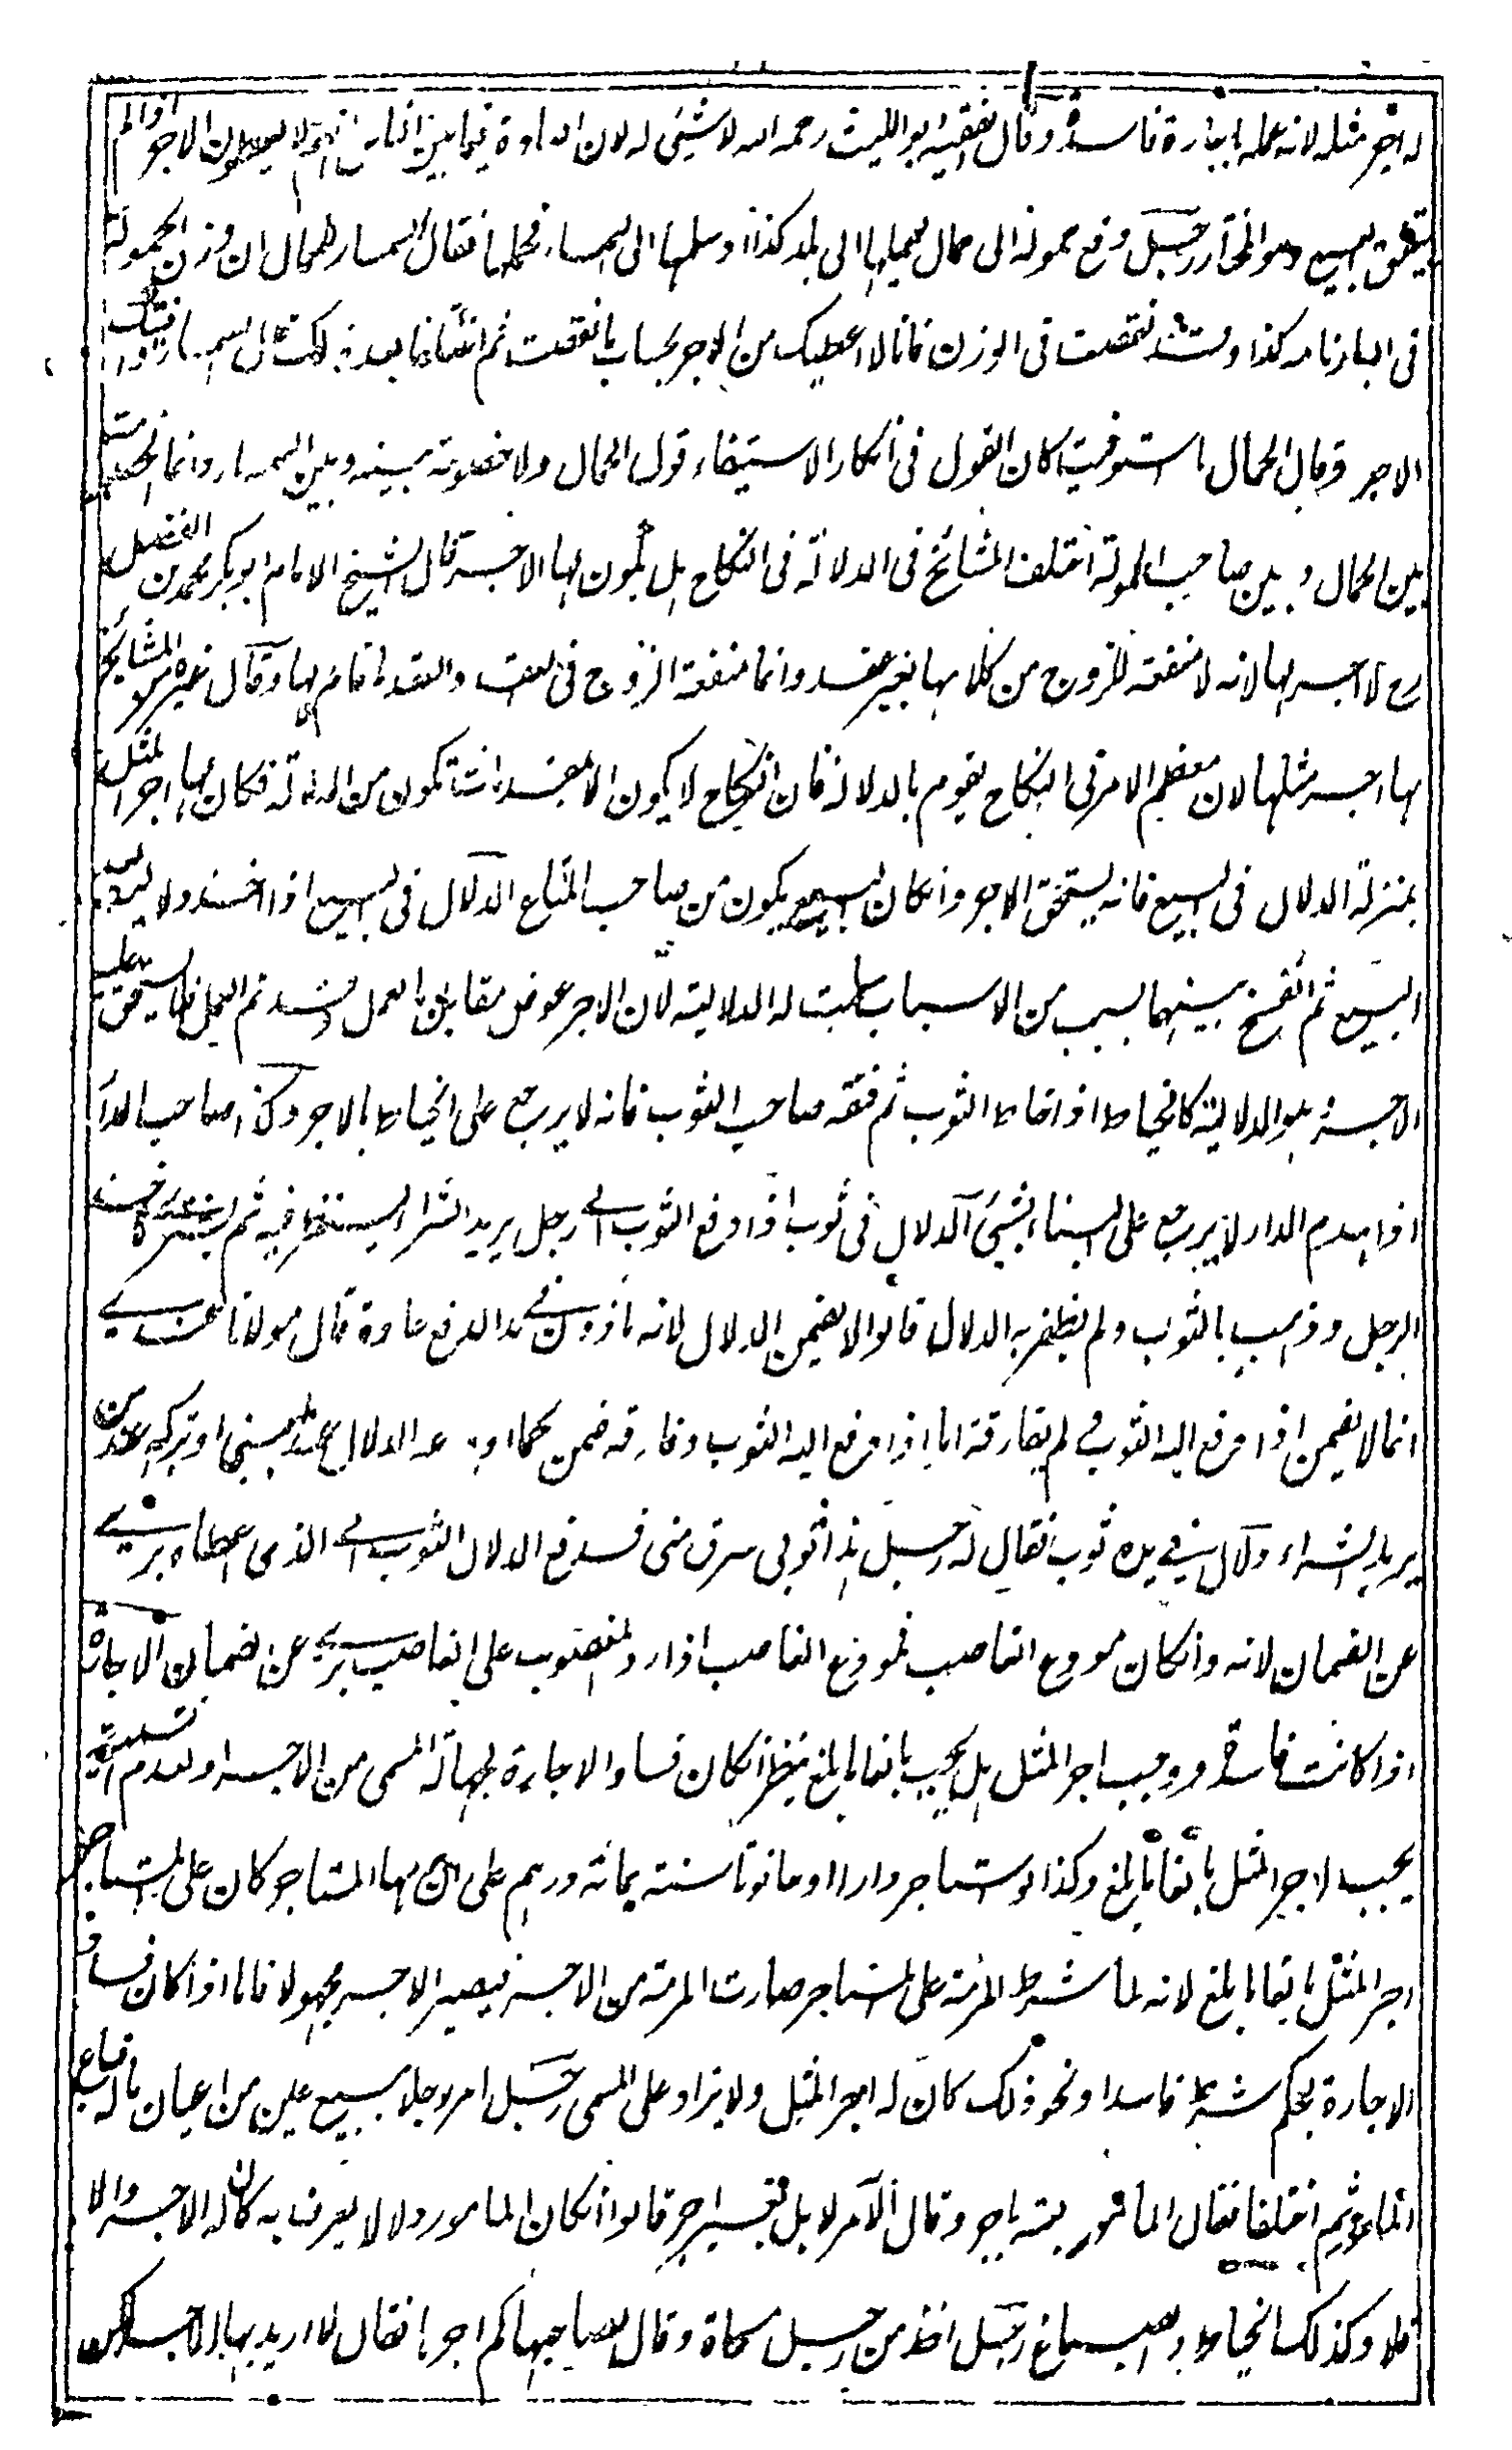 له اجر مثله لانه عمله باجارة فاسدة وقال الفقيه ابو الليث رحمه الله لا شيئ له لان العادة فيما بين الناس انهم لا يعطون الاجر اذا لم
يتفق البيع وهو المختار رجل دفع حمولة الى حمال ليحملها الى بلد كذا وسلمها الى السمسار فحملها فقال السمسار للحمال ان وزن الحمولة
فى البارنامه كذا وقد نقصت فى الوزن فانا لا اعطيك من الاجر بحساب ما نقصت ثم اختلفا بعد ذلك قال السمسار اوفيتك
الاجر وقال الحمال ما استوفيت كان القول فى انكار الاستيفاء قول الحمال ولا خصومة بينه وبين السمسار وانما الخصومة
بين الحمال وبين صاحب الحمولة اختلف المشائخ فى الدلالة فى النكاح هل يكون لها الاجر قال الشيخ الامام ابو بكر محمد بن الفضل
رح لا اجر لها لانه لا منفعة للزوج من كلامها بغير عقد وانما منفعة الزوج فى العقد والعقد ما قام بها وقال غيره من المشائخ
لها اجر مثلها لان معظم الامر فى النكاح يقوم بالدلالة فان النكاح لا يكون الا بمقدمات تكون من الدلالة فكان لها اجر المثل
بمنزلة الدلال فى البيع فانه يستحق الاجر وان كان البيع يكون من صاحب المتاع الدلال فى البيع اذا اخذ دلالية
البيع ثم انفسخ بينهما بسبب من الاسباب سلمت له الدلالية لان الاجر عوض مقابل بالعمل وقد تم العمل فلا يستحق عليه
الاجر هو الدلالية كالخياط اذا خاط الثوب ثم فتقه صاحب الثوب فانه لا يرجع على الخياط بالاجر وكذا صاحب الدار
اذا هدم الدار لا يرجع على البناء بشيئ الدلال فى ثوب اذا دفع الثوب الى رجل يريد الشراء لينظر فيه ثم يشتريه فاخذه
الرجل وذهب بالثوب ولم يظفر به الدلال قالوا لا يضمن الدلال لانه ماذون فى هذا الدفع عادة قال مولانا عندى
انما لا يضمن اذا دفع اليه الثوب و لم يفارقه اما اذا دفع اليه الثوب وفارقه ضمن كما لو اودعه الدلال عند اجنبى او تركه عند من
يريد الشراء دلال فى يده ثوب فقال له رجل هذا ثوبى سرق منى فدفع الدلال الثوب الى الذى اعطاه برئ
عن الضمان لانه وان كان مودع الغاصب فمودع الغاصب اذا رد المغصوب على الغاصب برئ عن الضمان الاجارة
اذا كانت فاسدة ووجب اجر المثل هل يجب بالغا ما بلغ ينظر ان كان فساد الاجارة لجهالة المسمى من الاجر او لعدم التسمية
يجب اجر المثل بالغا ما بلغ وكذا لو استاجر دارا او حانوتا سنة بمائة درهم على ان يرمها المستاجر كان على المستاجر
اجر المثل بالغا ما بلغ لانه لما شرط المرمة على المستاجر صارت المرمة من الاجر فيصير الاجر مجهولا فاما اذا كان فساد
الاجارة بحكم شرط فاسد او نحو ذلك كان له اجر المثل ولا يزاد على المسمى رجل امر رجلا ببيع عين من اعيان ماله فباع
المامور ثم اختلفا فقال المامور بعته باجر وقال الآمر لا بل بغير اجر قالوا ان كان المامور دلالا يعرف به كان له الاجر والا
فلا وكذلك الخياط والصباغ رجل اخذ من رجل مسحاة وقال لصاحبها كم اجرها فقال لا اريد بها الاجر لكن